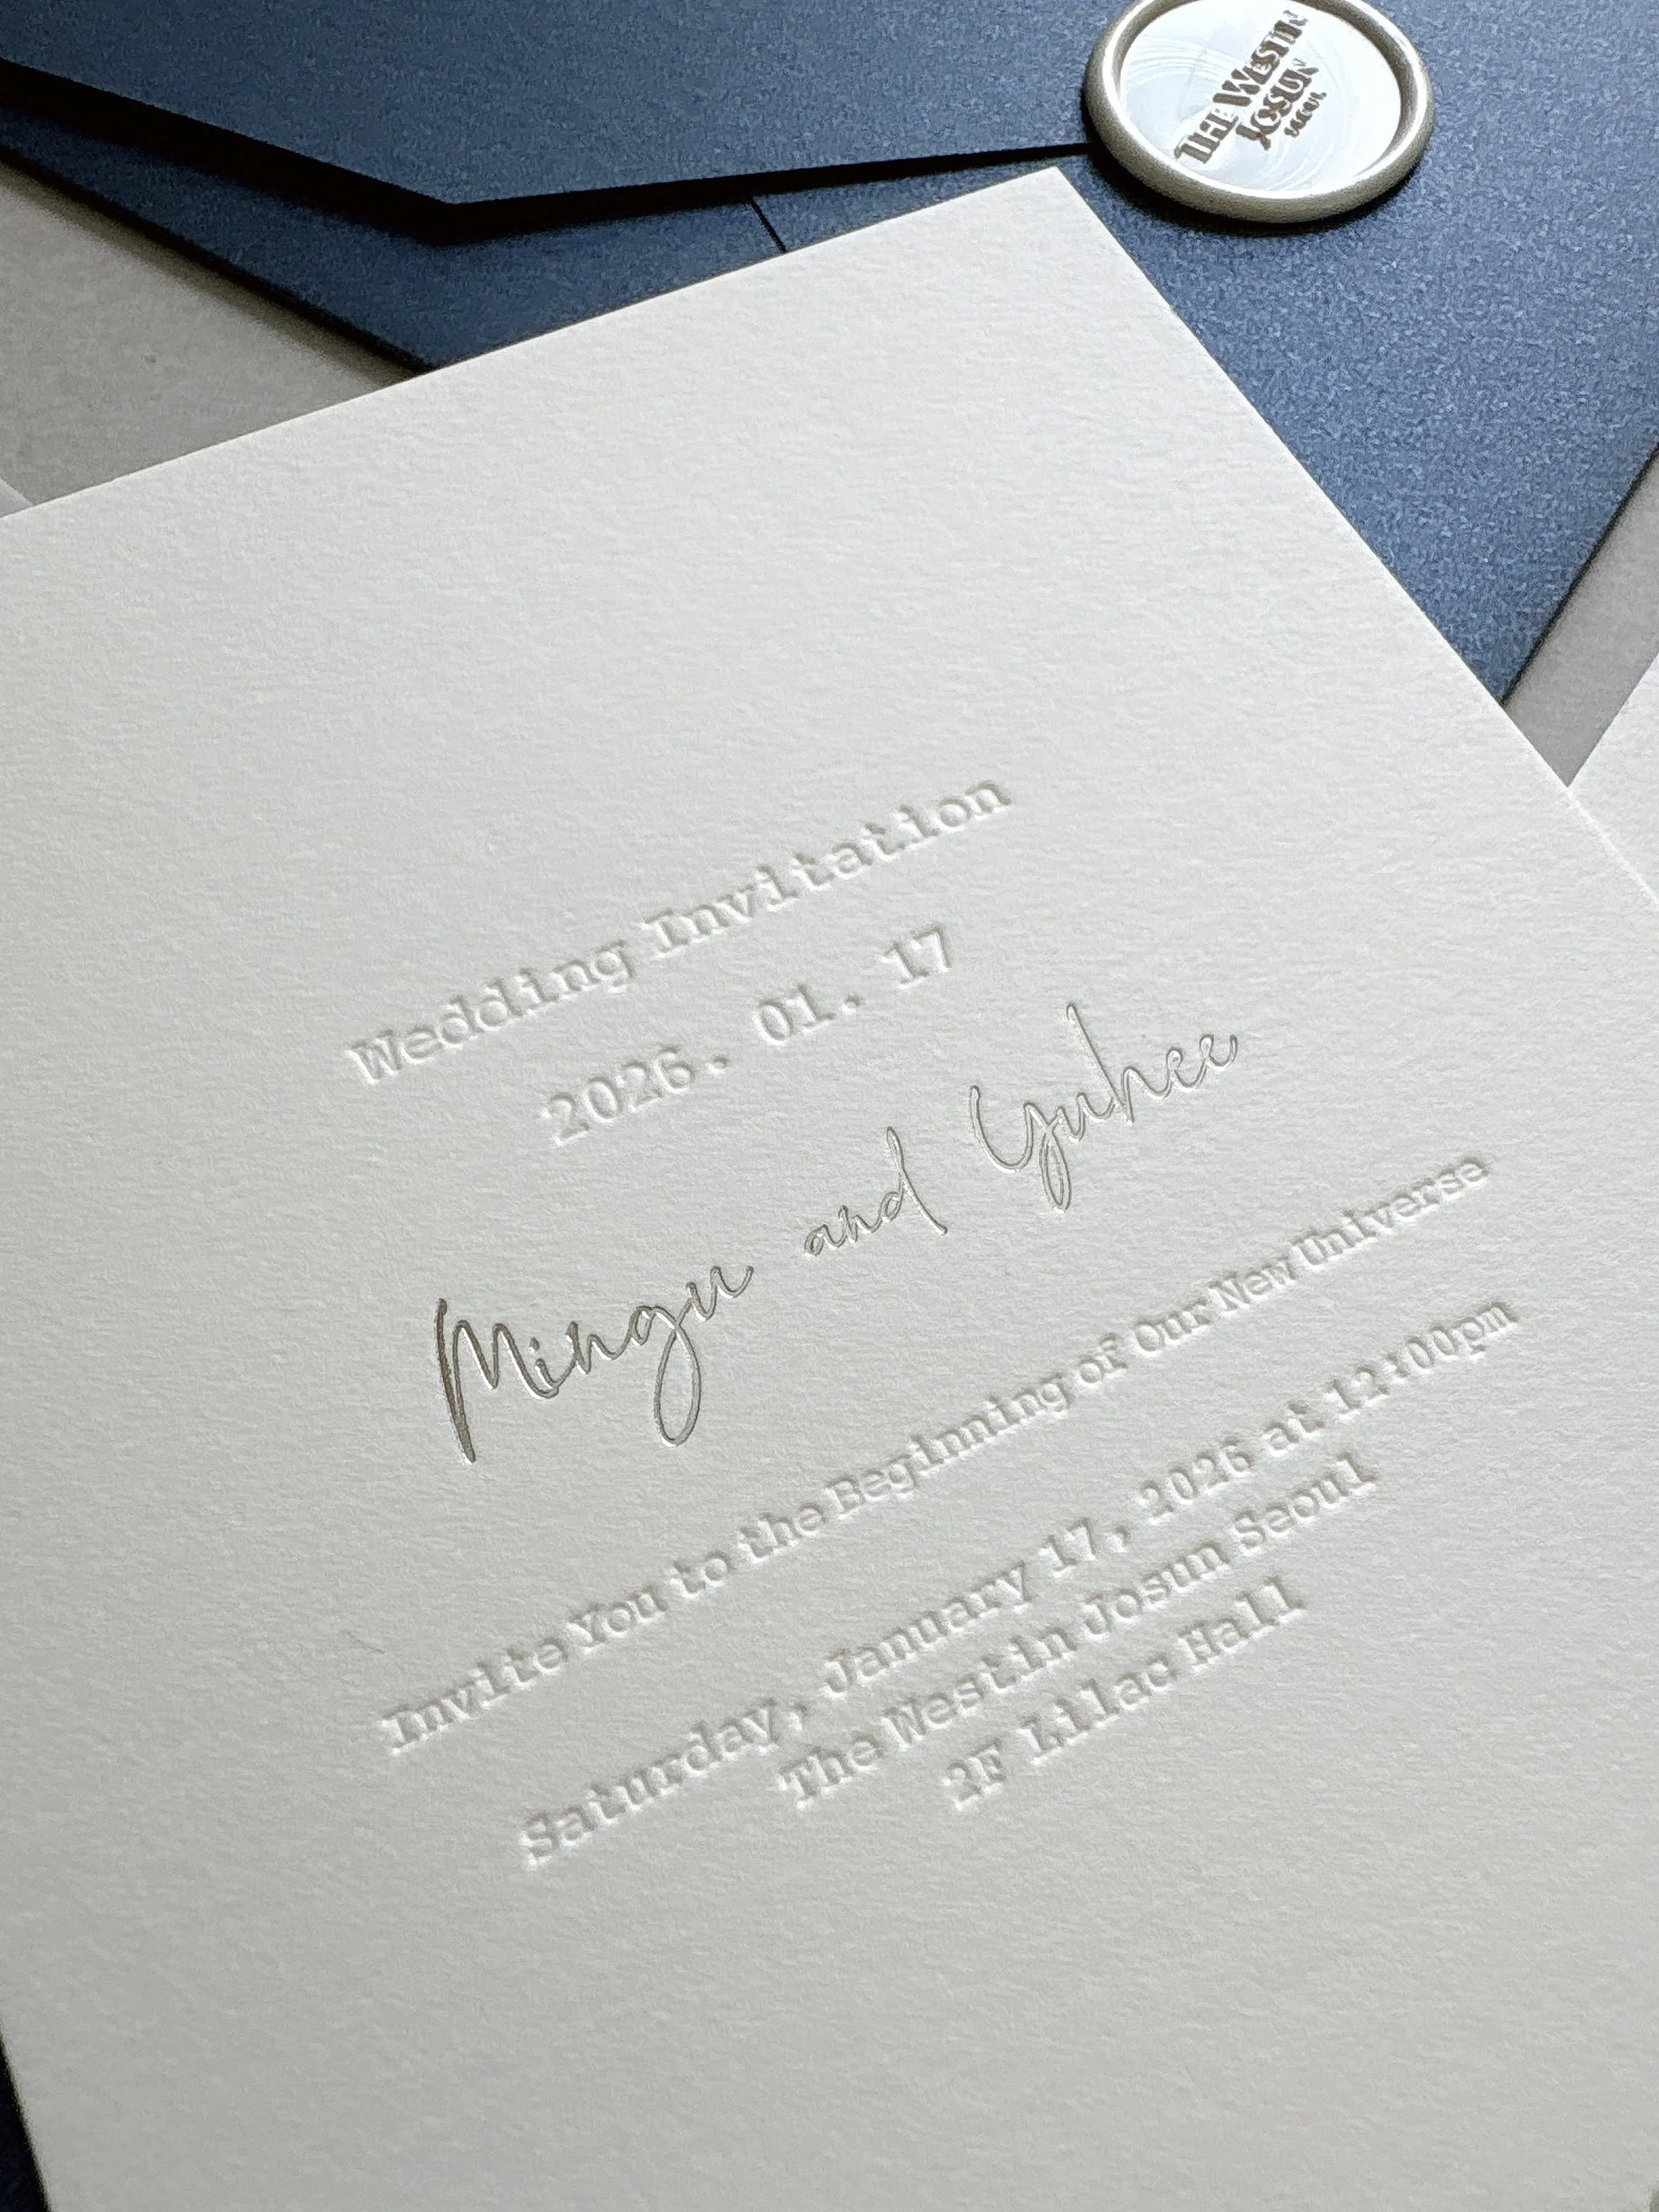 THE WESTIN
JOSUN
SEOUL
Wedding Invitation
2026. 01. 17
Mingu and Yuhee
Invite You to the Beginning of Our New Universe
Saturday, January 17, 2026 at 12:00pm
The Westin Josun Seoul
2F Lilac Hall